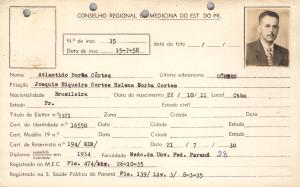 CONSELHO REGIONAL DE MEDICINA DO EST. DO PR.
N.º de insc. 15
data da foto / /
Data de insc. 15-7-58
Nome Atlantido Borba Côrtes Último sobrenome CÔRTES
Filiação Joaquim Siqueira Cortes Helena Borba Cortes
Nacionalidade Brasileira Data do nascimento 22 / 10 / 11 Local Ctba.
Estado Pr. Estado civil
Título de Eleitor n.º 1321
Cart. de Identidade n.º 16550 Data / / Local
Cart. Modêlo 19 n.º Data / / Local
Cart. de Reservista n.º 194/ Data 21 / 7 / 30 Local
Diploma 1934 Faculdade Medc.da Unv. Fed. Paraná 28
Registrado no M.E.C. Fls. 474/ 26-10-35
Registrado na S. Saúde Pública do Paraná Fls. 139/ Liv. 3/ 8-3-35